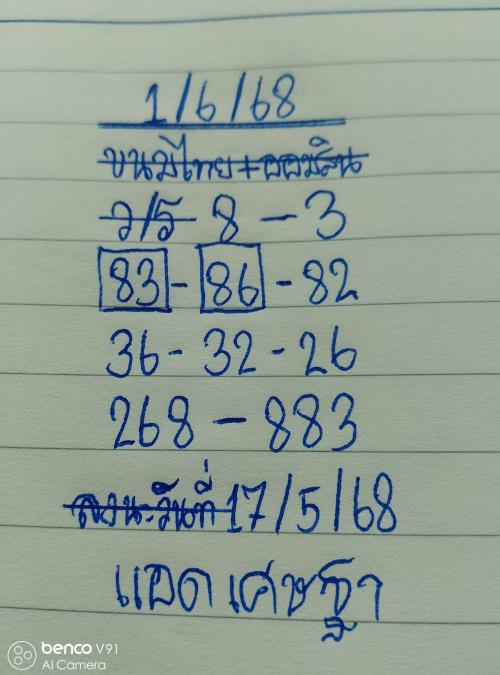 1/6/68
ขนมไทย+ออมสิน
ว/ร 8 - 3
83 - 86 - 82
36 - 32 - 26
268 - 883
ลงนะวันที่ 17/5/68
แอด เศษฐา
benco V91
AI Camera